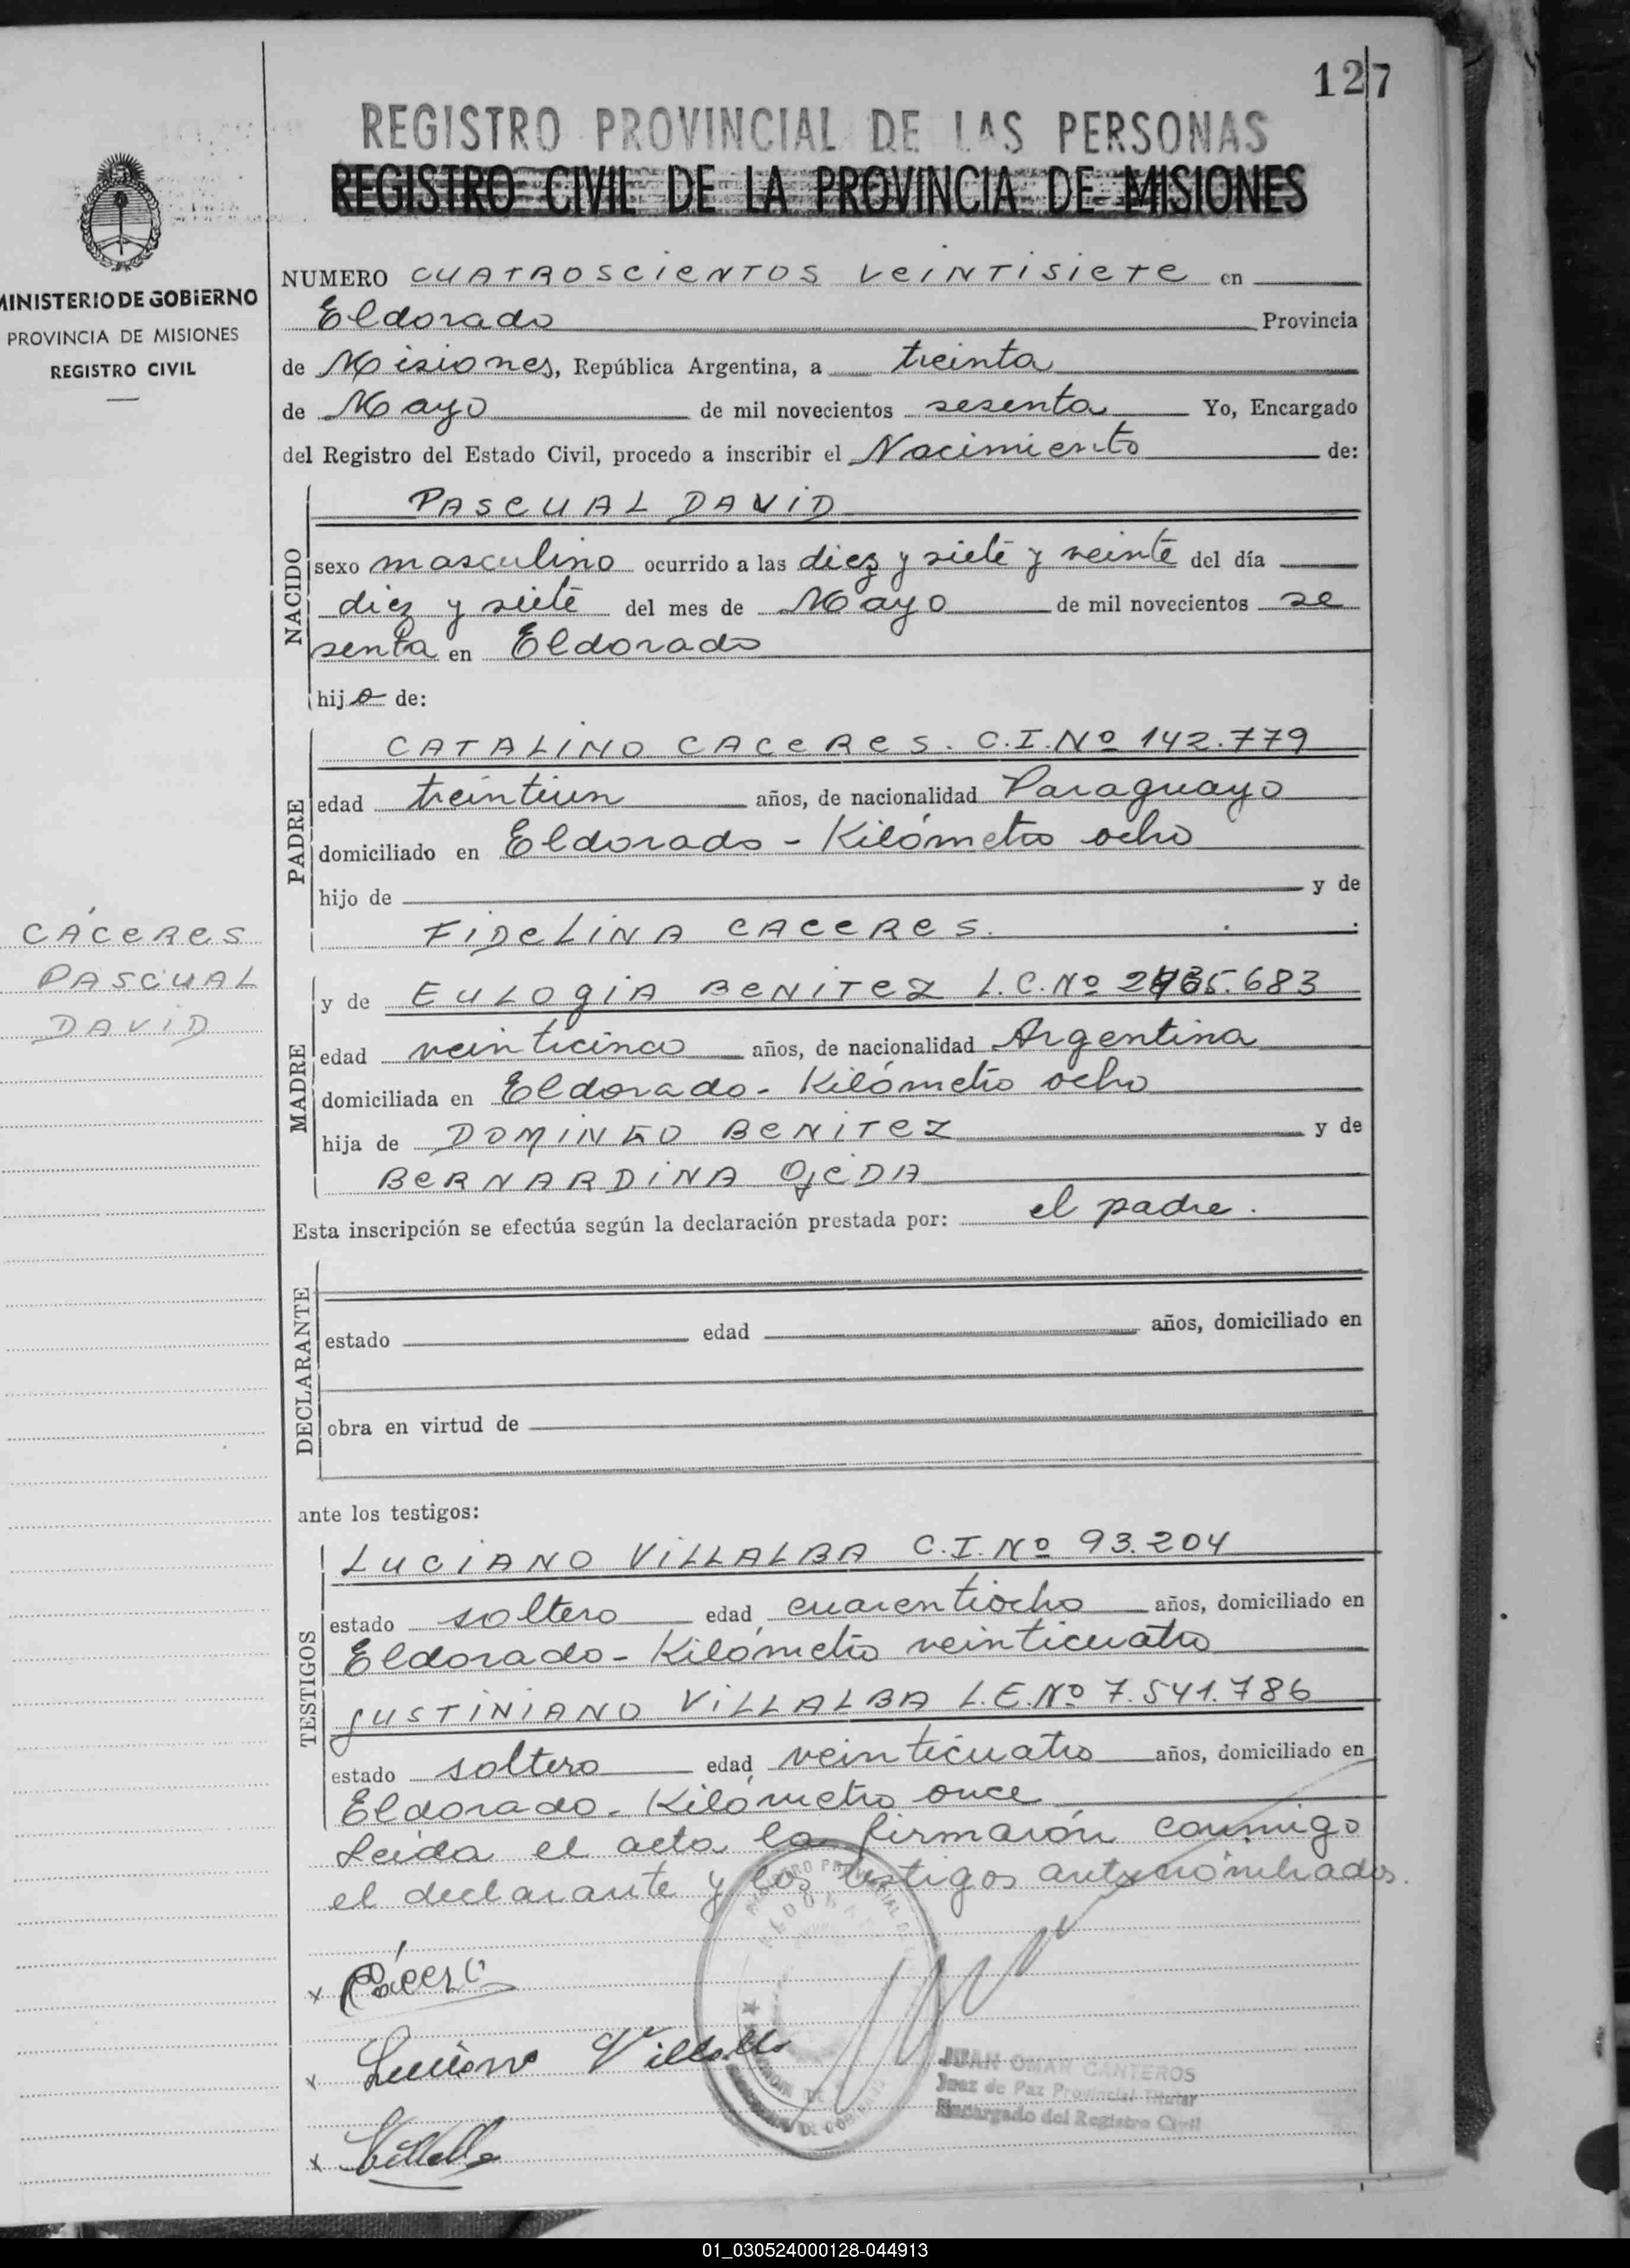 127
REGISTRO PROVINCIAL DE LAS PERSONAS
REGISTRO CIVIL DE LA PROVINCIA DE MISIONES
MINISTERIO DE GOBIERNO
PROVINCIA DE MISIONES
REGISTRO CIVIL
NUMERO CUATROSCIENTOS VEINTISIETE en
Eldorado Provincia
de Misiones, República Argentina, a treinta
de Mayo de mil novecientos sesenta Yo, Encargado
del Registro del Estado Civil, procedo a inscribir el Nacimiento de:
NACIDO
PASCUAL DAVID
sexo masculino ocurrido a las diez y siete y veinte del día
diez y siete del mes de Mayo de mil novecientos se
senta en Eldorado
hijo de:
PADRE
CATALINO CACERES. C.I.Nº 142.779
edad treintiun años, de nacionalidad Paraguayo
domiciliado en Eldorado - Kilómetro ocho
hijo de y de
FIDELINA CACERES.
CÁCERES
PASCUAL
DAVID
MADRE
y de EULOGIA BENITEZ L.C.Nº
edad veinticinco años, de nacionalidad Argentina
domiciliada en Eldorado - Kilómetro ocho
hija de DOMINGO BENITEZ y de
BERNARDINA OJEDA
Esta inscripción se efectúa según la declaración prestada por: el padre.
DECLARANTE
estado edad años, domiciliado en
obra en virtud de
ante los testigos:
TESTIGOS
LUCIANO VILLALBA C.I.Nº 93.204
estado soltero edad cuarentiocho años, domiciliado en
Eldorado - Kilómetro veinticuatro
JUSTINIANO VILLALBA L.E.Nº 7.541.786
estado soltero edad veinticuatro años, domiciliado en
Eldorado - Kilómetro once
Leida el acta la firmarón conmigo
el declarante y los testigos antenómbrados.
x Cáceres
x Luciano Villalba
x Villalba
JUAN OMAR CANTEROS
Juez de Paz Provincial Titular
Encargado del Registro Civil
01_030524000128-044913